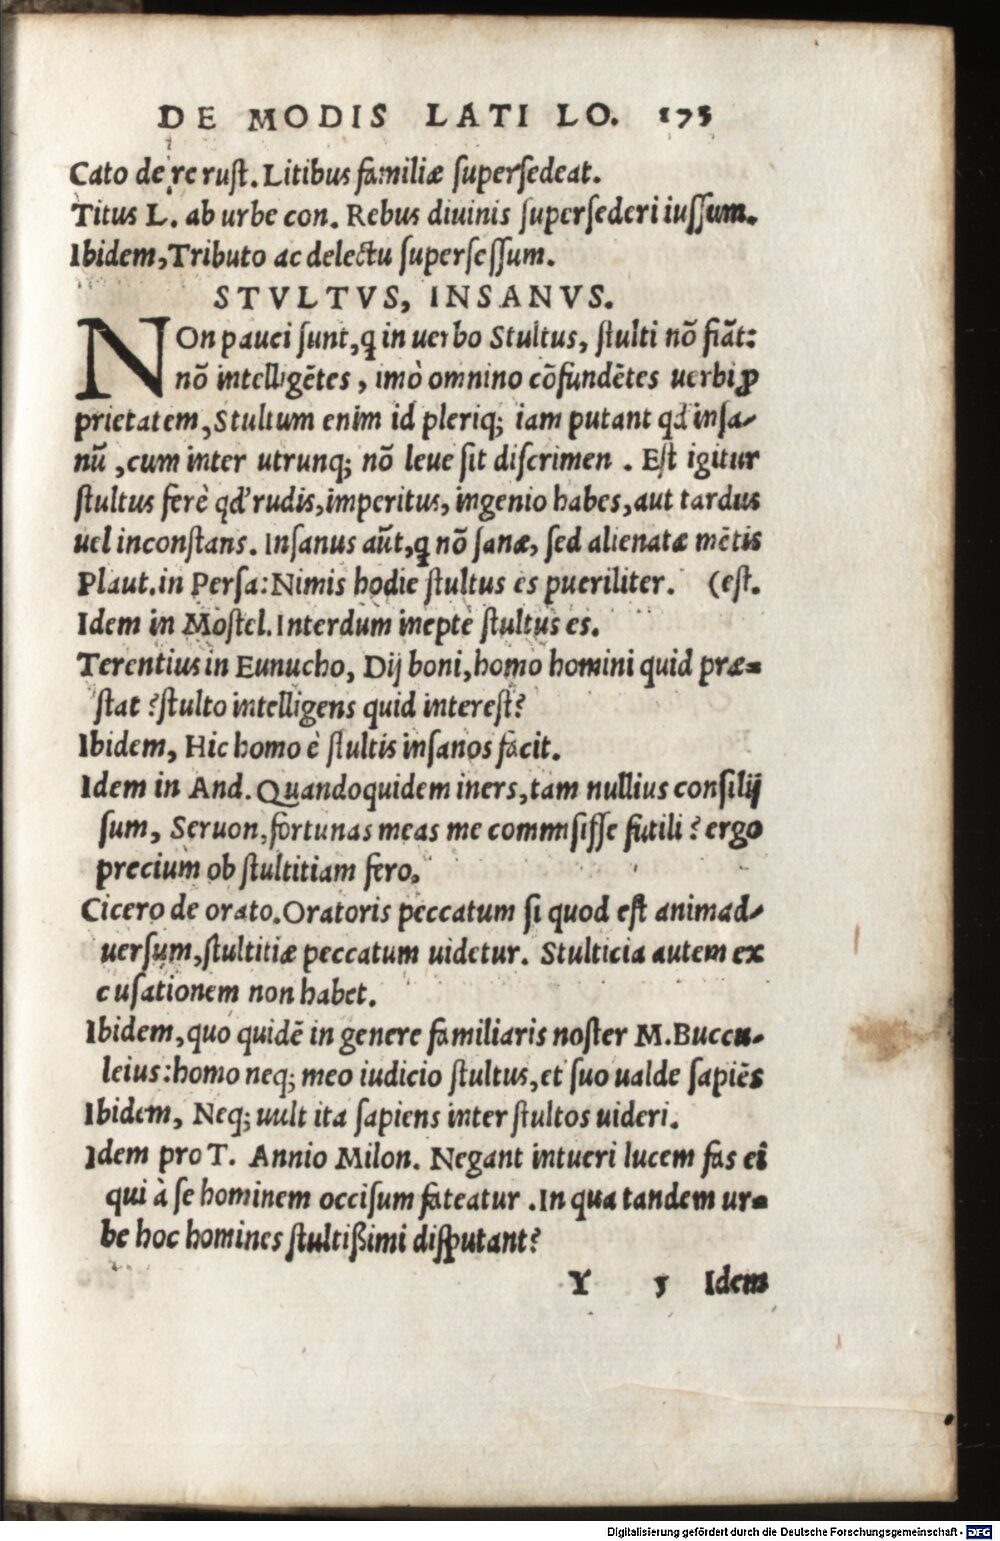 DE MODIS LATI LO. 173
Cato de re rust. Litibus familiæ supersedeat.
Titus L. ab urbe con. Rebus diuinis supersederi iussum.
Ibidem, Tributo ac delectu supersessum.
STVLTVS, INSANVS.
NOn pauci sunt, ꝗ in uerbo Stultus, stulti nõ fiãt:
nõ intelligẽtes, imò omnino cõfundẽtes uerbi ꝓ
prietatem, Stultum enim id pleriq; iam putant qd' insa-
nũ, cum inter utrunq; nõ leue sit discrimen. Est igitur
stultus ferè qd' rudis, imperitus, ingenio habes, aut tardus
uel inconstans. Insanus aũt, ꝗ nõ sanæ, sed alienatæ mẽtis
Plaut. in Persa: Nimis hodie stultus es pueriliter. (est.
Idem in Mostel. Interdum ineptè stultus es.
Terentius in Eunucho, Dij boni, homo homini quid præ-
stat? stulto intelligens quid interest?
Ibidem, Hic homo è stultis insanos facit.
Idem in And. Quandoquidem iners, tam nullius consilij
sum, Seruon, fortunas meas me commisisse futili? ergo
precium ob stultitiam fero.
Cicero de orato. Oratoris peccatum si quod est animad-
uersum, stultitiæ peccatum uidetur. Stulticia autem ex
cusationem non habet.
Ibidem, quo quidẽ in genere familiaris noster M. Buccu-
leius: homo neq; meo iudicio stultus, et suo ualde sapiẽs
Ibidem, Neq; uult ita sapiens inter stultos uideri.
Idem pro T. Annio Milon. Negant intueri lucem fas ei
qui à se hominem occisum fateatur. In qua tandem ur-
be hoc homines stultißimi disputant?
Y 5 Idem
Digitalisierung gefördert durch die Deutsche Forschungsgemeinschaft - DFG